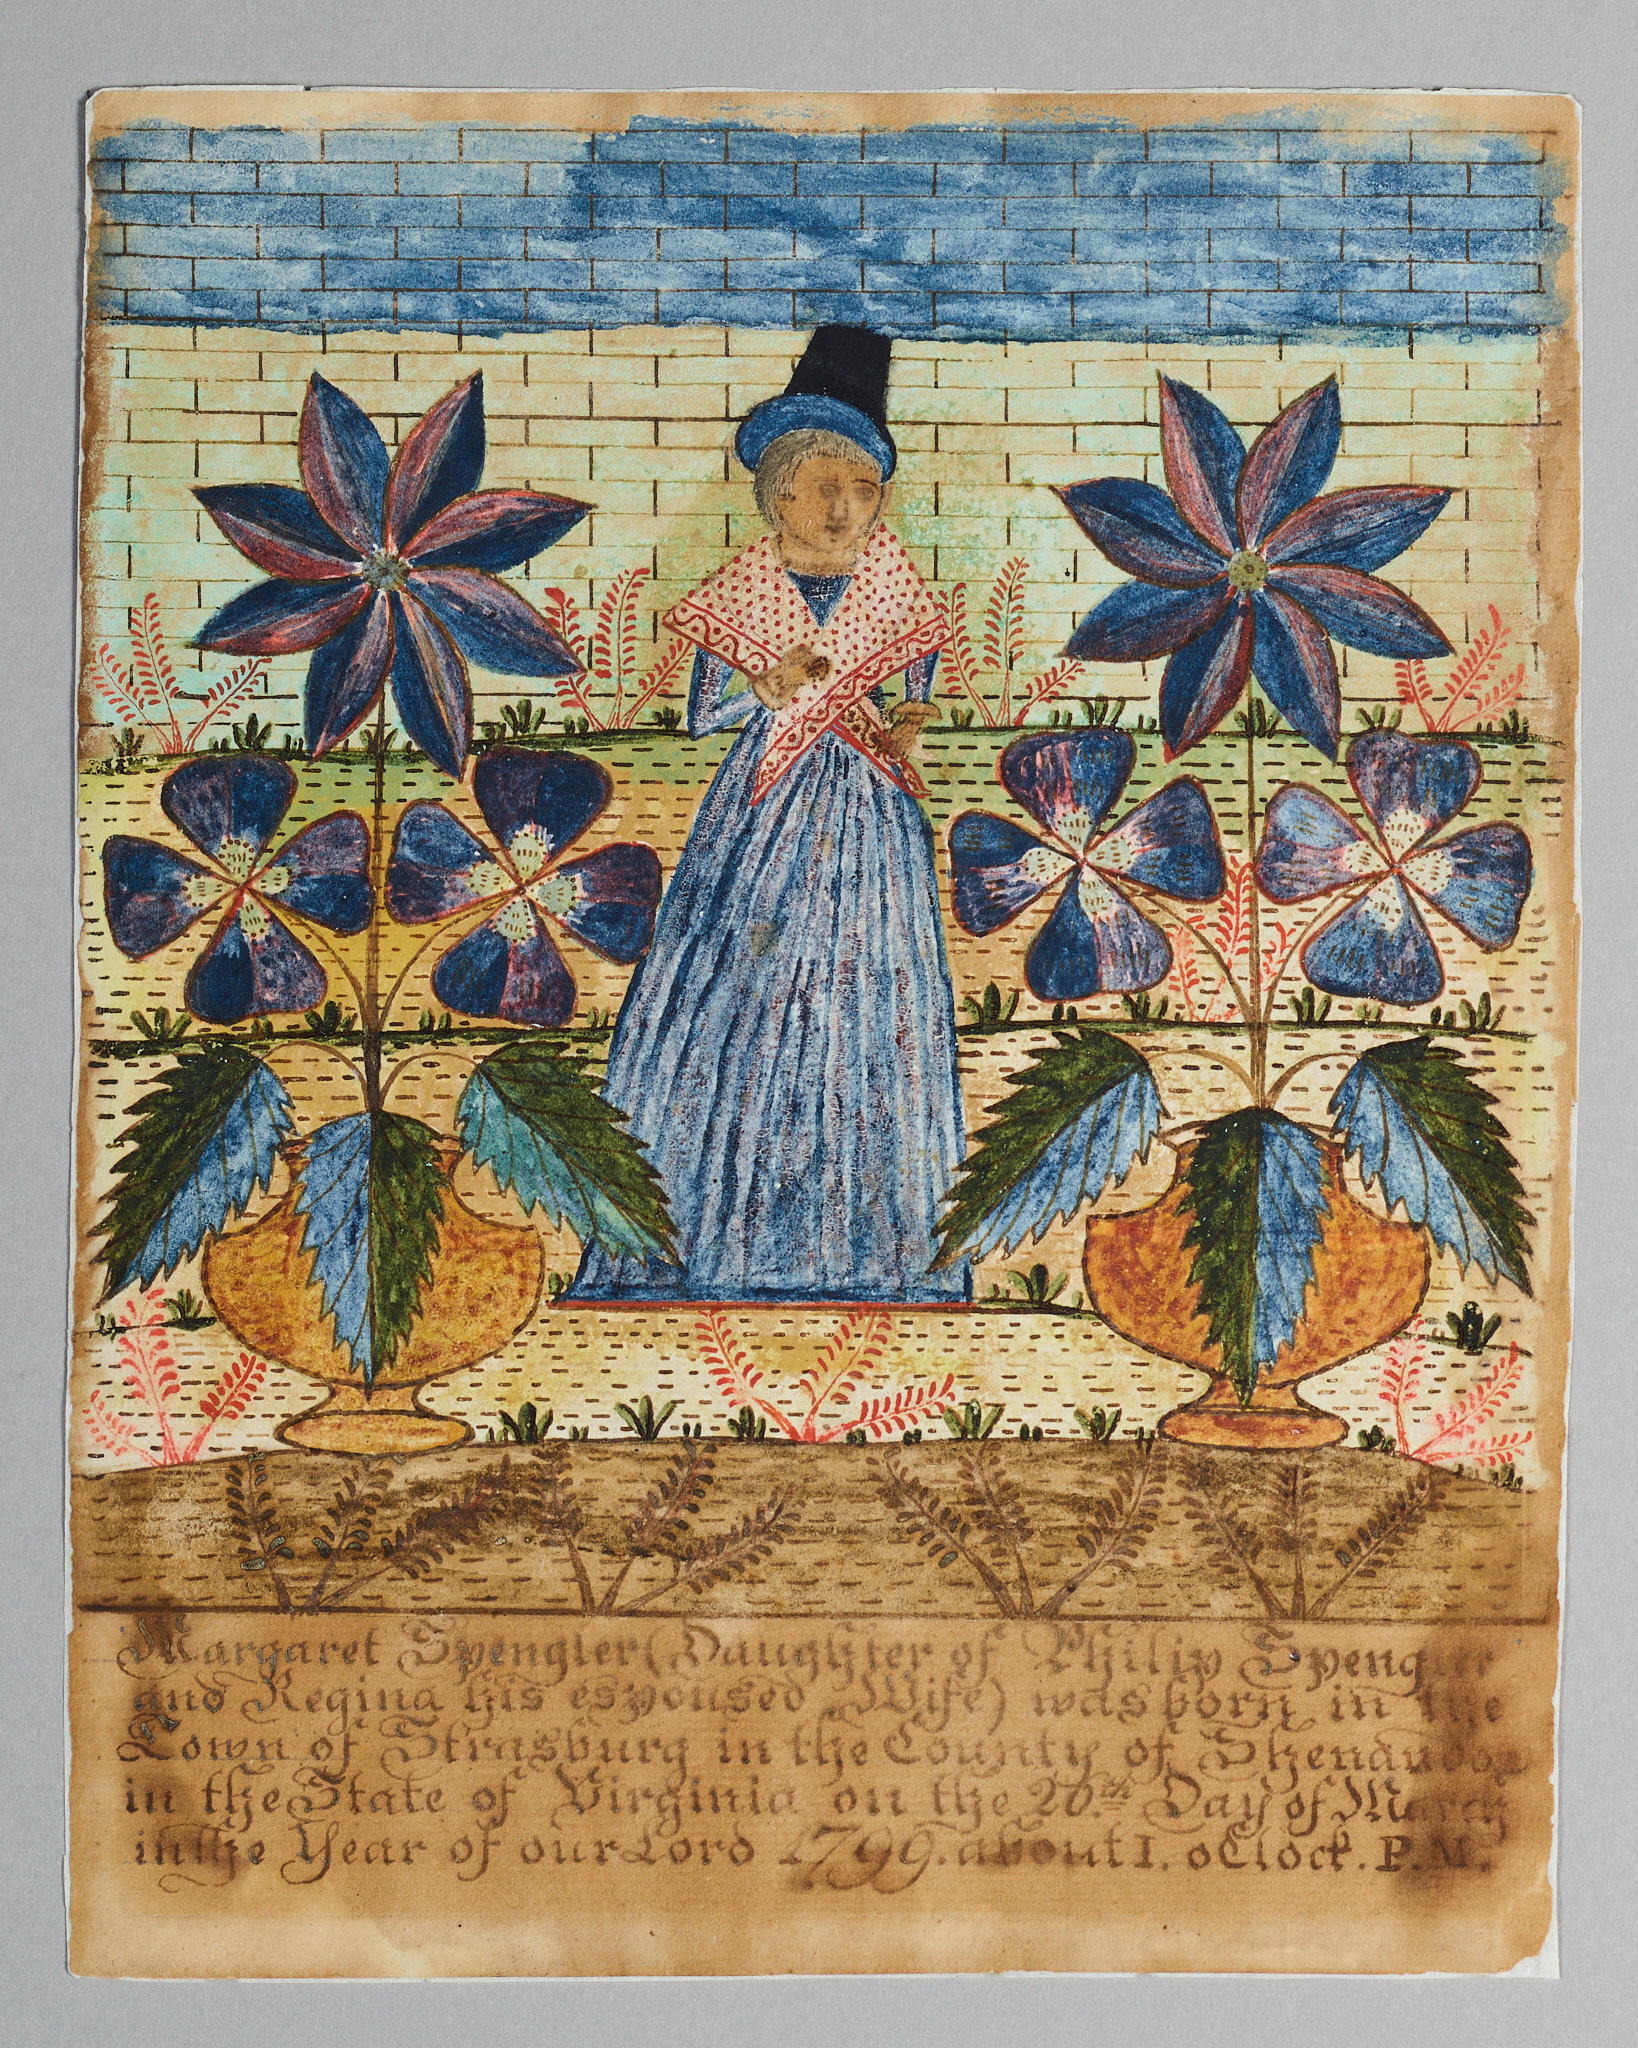 Margaret Spengler (Daughter of Philip Spengler
and Regina his espoused Wife) was born in the
Town of Strasburg in the County of Shenandoa
in the State of Virginia on the 20.th Day of March
in the Year of our Lord 1799. about 1. oClock. P.M.